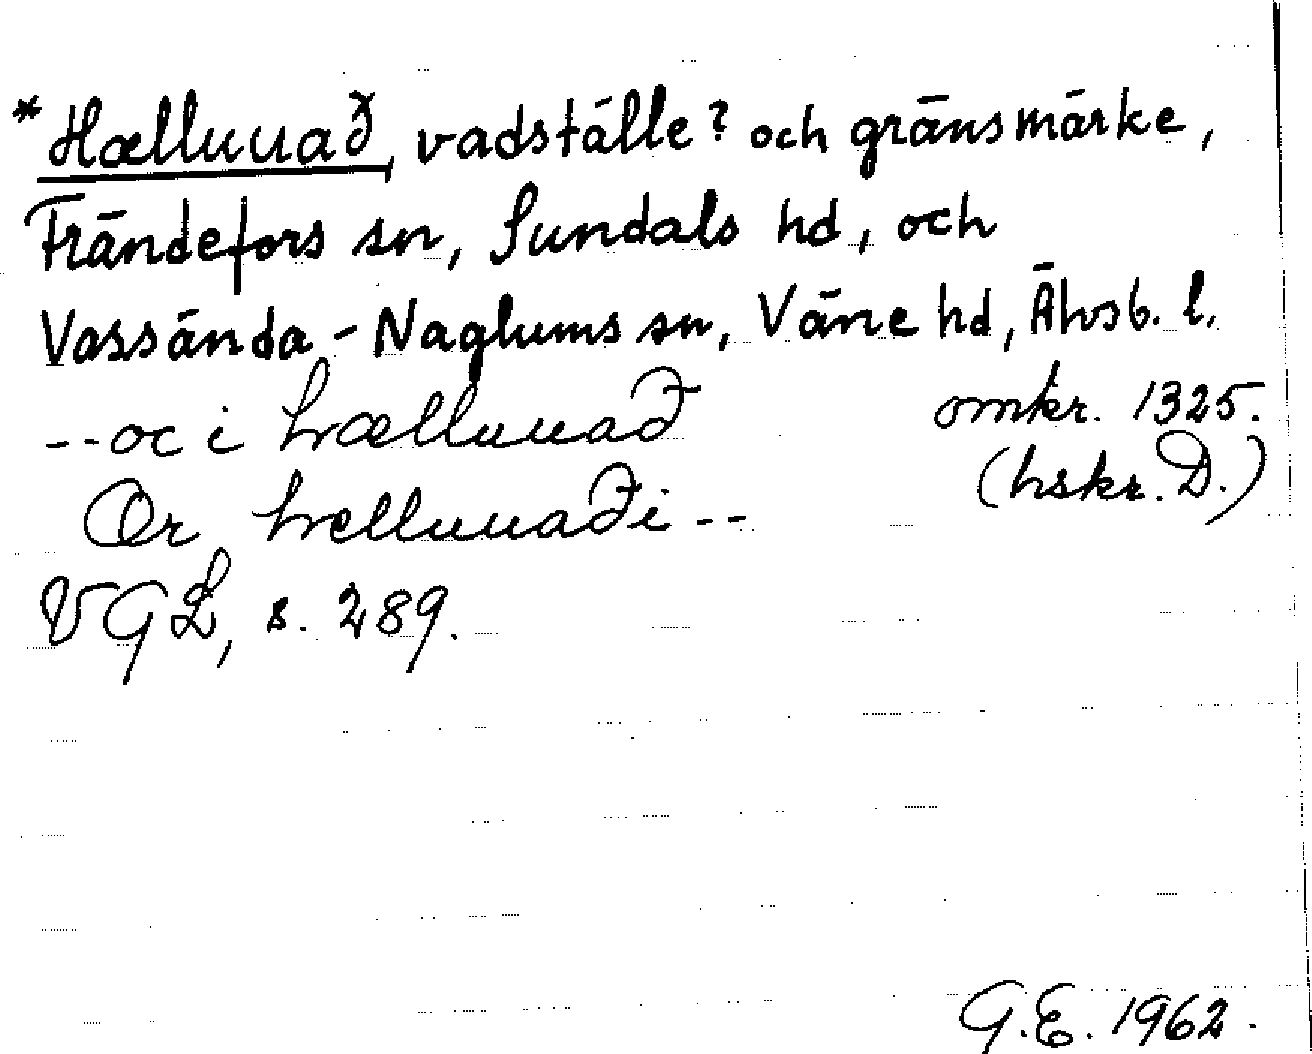 *Hælluuað, vadställe? och gränsmärke,
Frändefors sn, Sundals hd, och
Vassända-Naglums sn, Väne hd, Älvsb. l.
--oc i hælluuað omkr. 1325.
Or hælluuaði-- (hskr. D.)
VGL, s. 289.
G.E. 1962.